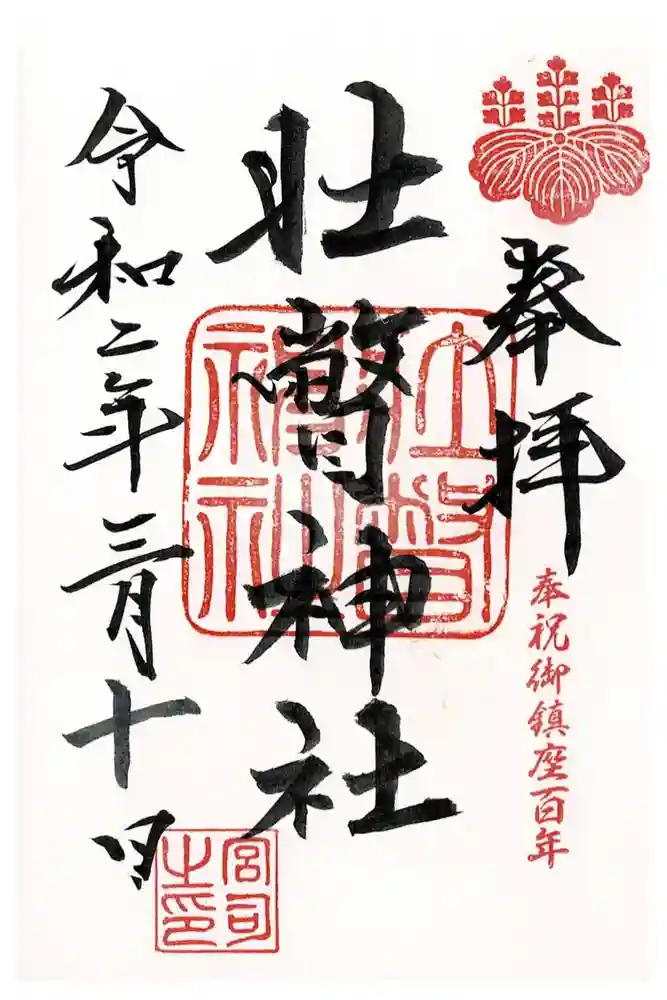 奉拝
奉祝御鎮座百年
壮瞥神社
壮瞥神社
令和二年三月十日
宮司之印